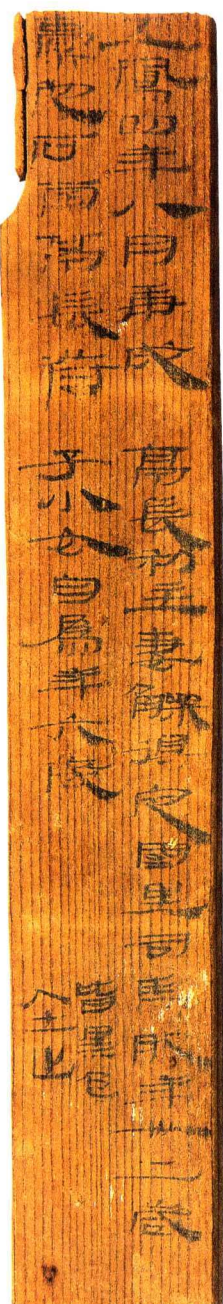 五鳳四年八月庚戌 亭長利主妻觻得定國里司馬服年卅二歲
橐他石南亭長符 子小女自為年六歲
皆黑色
入出止